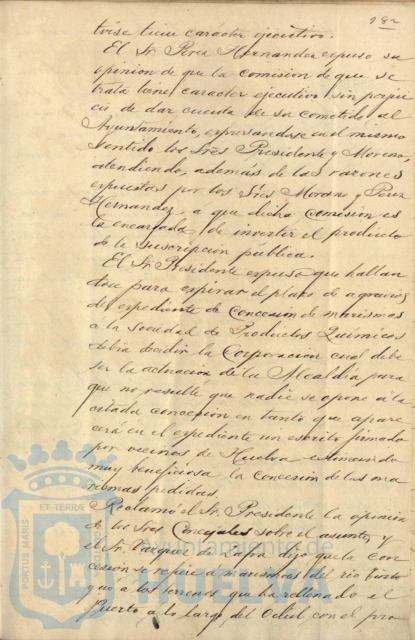 182
tráese tiene carácter ejecutivo.
El Sr. Perez Hernandez expuso su
opinion de que la comision de que se
trata tiene caracter ejecutivo sin perjui
cio de dar cuenta de su cometido al
Ayuntamiento, expresandose en el mismo
sentido los Sres Presidente y Moreno,
atendiendo, además de las razones
expuestas por los Sres Moreno y Perez
Hernandez, á que dicha comision es
la encargada de invertir el producto
de la suscripción pública.
El Sr. Presidente expuso que hallan
dose para espirar el plazo de agravios
del expediente de concesion de marismas
á la sociedad de Productos Químicos
debia decidir la Corporacion cual debe
ser la actuacion de la Alcaldía para
que no resulte que nadie se opone á la
citada concesion en tanto que apare
cerá en el expediente un escrito firmado
por vecinos de Huelva estimando
muy beneficiosa la concesion de las ma
rismas pedidas.
Reclamó el Sr. Presidente la opinion
de los Sres Concejales sobre el asunto y
el Sr. Vazquez de la que la con
cesion se refiere á marismas del rio Tinto
que á los terrenos que ha rellenado el
Puerto á lo largo del Odiel con el pro
PORTUS MARIS ET TERRAE
Ayuntamiento de
HUELVA